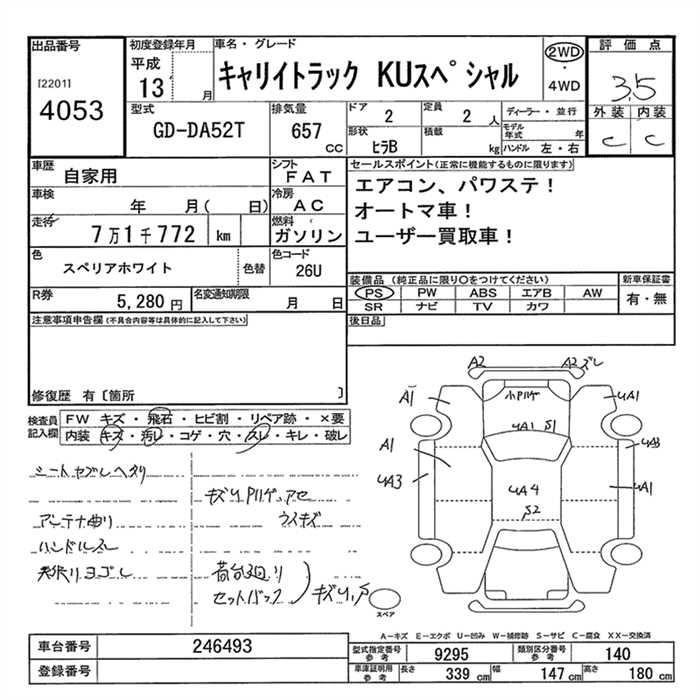 出品番号
[2201]
4053
初度登録年月
平成
13
月
車名・グレード
キャリイトラック KUスペシャル
2WD
・
4WD
評価点
3.5
外装 内装
C C
型式
GD-DA52T
排気量
657
CC
ドア
2
定員
2 人
形状
ヒラB
積載
kg
ディーラー・並行
モデル年式 年
ハンドル 左・右
車歴
自家用
シフト
FAT
車検
年 月( 日)
冷房
AC
走行
7万1千772 km
燃料
ガソリン
色
スペリアホワイト
色替
色コード
26U
R券
5,280 円
名変通知期限
月 日
セールスポイント(正常に機能するものに限ります)
エアコン、パワステ!
オートマ車!
ユーザー買取車!
装備品 (純正品に限り○をつけてください)
PS PW ABS エアB AW
SR ナビ TV カワ
新車保証書
有・無
後日品
注意事項申告欄(不具合内容等は具体的に記入して下さい)
修復歴 有〔箇所 〕
検査員記入欄
FW キズ・飛石・ヒビ割・リペア跡・×要
内装 キズ・汚レ・コゲ・穴・スレ・キレ・破レ
アンテナ曲り
ハンドルスレ
ヨゴレ
ウスキズ
荷台廻り
セットバック
A2 A2 ズレ
A1 UA1
UA1 S1
A1 UA3
UA3 UA4 UA1
S2
スペア
A-キズ E-エクボ U-凹み W-補修跡 S-サビ C-腐食 XX-交換済
車台番号
246493
登録番号
型式指定番号参考
9295
類別区分番号参考
140
車庫証明用参考
長さ 339 cm
幅 147 cm
高さ 180 cm